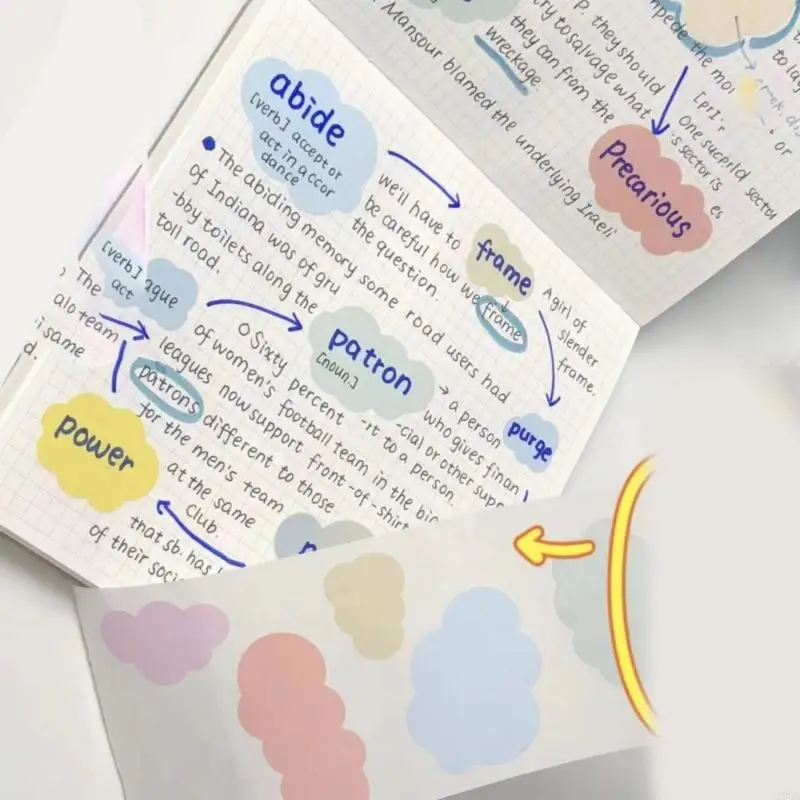 abide
[verb] accept or
act in accor
dance
The abiding memory some road users had
of Indiana was of gru
-bby toilets along the
toll road.
we'll have to
be careful how we frame
the question.
frame
A girl of
slender
frame.
[verb] ague
act
The
alo team
i same
d.
patron
[noun.]
→ a person
who gives finan
-cial or other supp
-rt to a person
purge
○ Sixty percent
of women's football team in the big
leagues now support front-of-shirt
patrons different to those
for the men's team
at the same
club.
power
that sb. has
of their soci
Mansour blamed the underlying Iraeli
wreckage.
they can from the
try to salvage what
P. they should
mpede the mo
Precarious
[prI'r
One sucprld sector
's sector is
es
or
to la